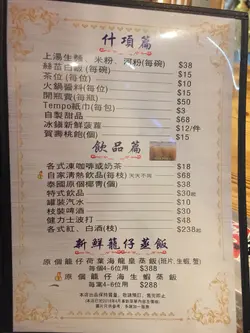 什項篇
上湯生麵、米粉、河粉(每碗) $38
絲苗白飯(每碗) $15
茶位(每位) $15
火鍋醬料(每位) $10
開瓶費(每瓶) $50
Tempo紙巾(每包) $3
自製甜品 $68
冰鎮新鮮菠蘿 $12/件
賀壽桃飽(個) $15
飲品篇
各式凍咖啡或奶茶 $18
自家清熱飲品(每枝) $68
泰國原個椰青(個) $38
特式飲品 $30
罐裝汽水 $10
枝裝啤酒 $30
健力士波打 $48
各式紅、白酒(枝) $238起
新鮮籠仔蒸飯
原個籠仔荷葉海龍皇蒸飯(斑片,生蝦,蟹)
每籠4-6位用 $388
原個籠仔海生蝦蒸飯
每籠4-6位用 $288